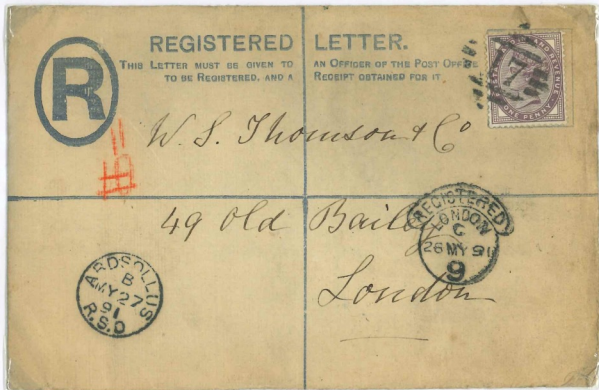 REGISTERED LETTER.
THIS LETTER MUST BE GIVEN TO AN OFFICER OF THE POST OFFICE
TO BE REGISTERED, AND A RECEIPT OBTAINED FOR IT.
R
W. S. Thomson & Co
49 Old Bailey
London
REGISTERED
LONDON
C
26 MY 91
9
ARDSOLLUS
B
MY 27
91
R.S.O
ONE PENNY